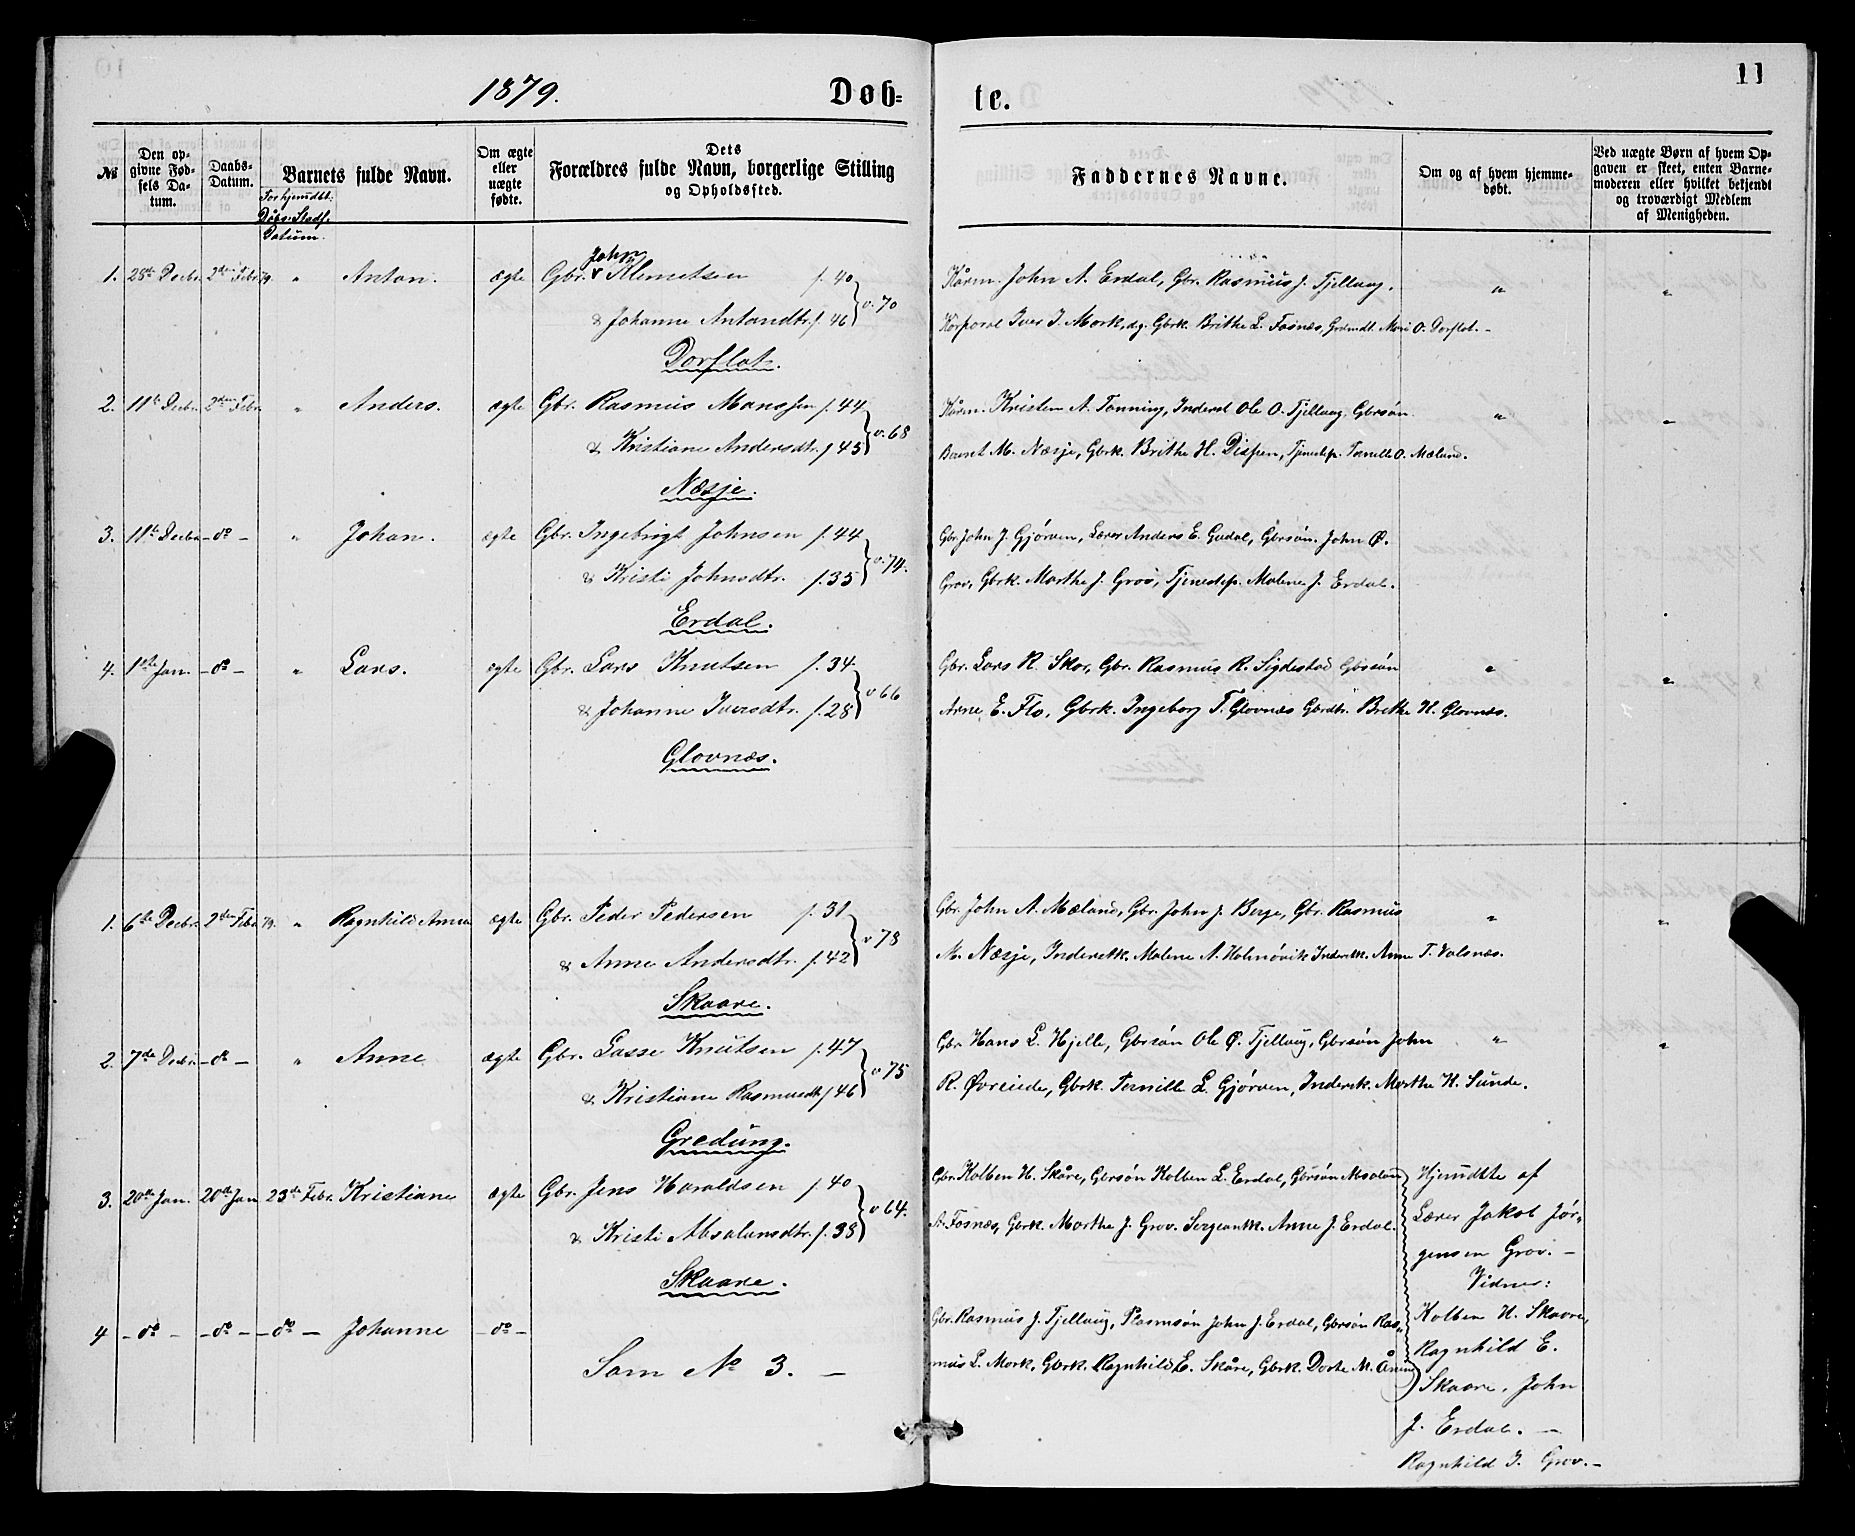 1879. Døb= te. 11
№
Den op-
givne Fød-
sels Da-
tum.
Daabs-
Datum.
Barnets fulde Navn.
For hjemdbt:
Dåbs: Stadf.
Datum.
Om ægte
eller
uægte
fødte.
Dets
Forældres fulde Navn, borgerlige Stilling
og Opholdssted.
Faddernes Navne.
Om og af hvem hjemme-
døbt.
Ved uægte Børn af hvem Op-
gaven er skeet, enten Barne-
moderen eller hvilket bekjendt
og troværdigt Medlem
af Menigheden.
John
1. 28de Decbr. 2den Febr. 79. " Anton. ægte Gbr. v Klemetsen f. 40
& Johanne Antondtr. f. 46 } v. 70
Dorflot.
Kårm. John A. Erdal, Gbr. Rasmus J. Tjellaug,
Korporal Iver J. Mork, Gbrk. Brithe L. Fosnæs, Grdmdt. Mari O. Dorflot. -
2. 11te Decbr. 2den Febr. " Anders. ægte Gbr. Rasmus Monssen f. 44
& Kristiane Andersdtr. f. 45 } v. 68
Næsje.
Kårm. Kristen A. Tonning, Inderst Ole O. Tjellaug, Gbrsøn
Bernt M. Næsje, Gbrk. Brithe H. Dispen, Tjenestep. Pernille O. Mæland.
3. 11te Decbr. - do - " Johan. ægte Gbr. Ingebrigt Johnsen f. 44
& Kristi Johnsdtr. f. 35 } v. 74.
Erdal.
Gbr. John J. Gjørven, Lærer Anders E. Gudal, Gbrsøn. John Ø.
Grov, Gbrk. Marthe J. Grov, Tjenestep. Malene J. Erdal.
4. 1ste Jan. - do - " Lars. ægte Gbr. Lars Knutsen f. 34
& Johanne Iversdtr. f. 28 } v 66
Glovnæs.
Gbr. Lars R. Skor, Gbr. Rasmus R. Sigdestad Gbrsøn
Arne E. Flo, Gbrk. Ingeborg T. Glovnæs Gbrdtr. Brithe H. Glovnæs.
1. 6te Decbr. 2den Febr. 79. " Ragnhild Anna ægte Gbr. Peder Pedersen f. 31
& Anne Andersdtr. f. 42 } v 78
Skaare.
Gbr. John A. Mæland, Gbr. John J. Berge, Gbr. Rasmus
M. Næsje, Inderstk. Malene A. Holmøvik Inderstk. Anne T. Valsnæs.
2. 7de Decbr. - do - " Anne ægte Gbr. Lasse Knutsen f. 47
& Kristiane Rasmusdt. f 46 } v 75
Gredung.
Gbr. Hans L. Hjelle, Gbrsøn Ole Ø. Tjellaug, Gbrsøn John
R. Øvreeide, Gbrk. Pernille L. Gjørven, Inderstk. Marthe H. Sunde.
3. 20de Jan. 20de Jan 23de Febr. Kristiane ægte Gbr. Jens Haraldsen f. 40
& Kristi Absalonsdtr. f. 38 } v 64.
Skaare.
Gbr. Kolben H. Skåre, Gbrsøn Kolben L. Erdal, Gbrsøn Absalon
A. Fosnæs, Gbrk. Marthe J. Grov. Sergeantk. Anne J. Erdal.
Hjemdbte af
Lærer Jakob Jør-
gensen Grov. -
Vidner:
Kolben H. Skaare,
Ragnhild E.
Skaare, John
J. Erdal. -
Ragnhild I. Grov. -
4 - do - - do - - do - Johanne - do -
Som № 3. -
Gbr. Rasmus J. Tjellaug, Plasmsøn John J. Erdal, Gbrsøn Ras-
mus L. Mork, Gbrk. Ragnhild E. Skåre, Gbrk. Dorte M.